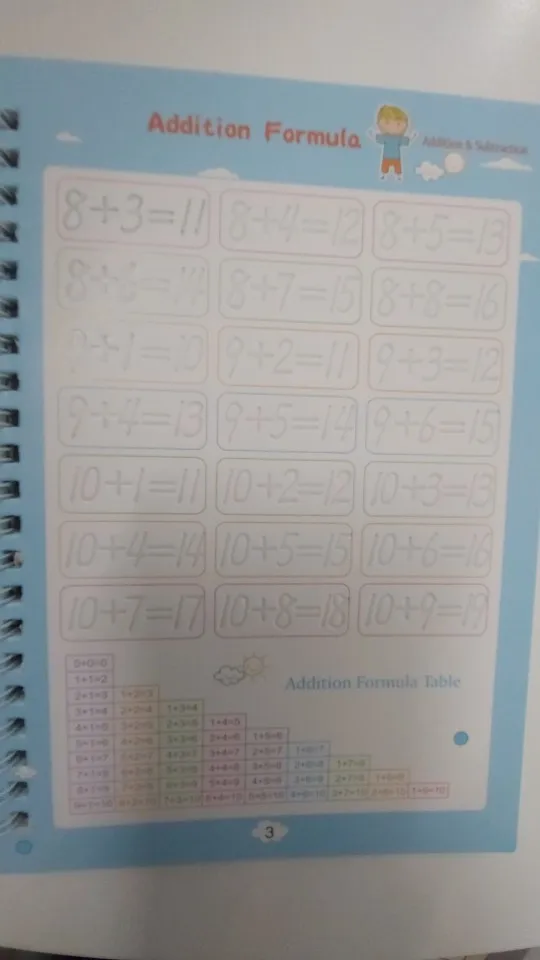 Addition Formula
Addition & Subtraction
8+3=11 8+4=12 8+5=13
8+6=14 8+7=15 8+8=16
9+1=10 9+2=11 9+3=12
9+4=13 9+5=14 9+6=15
10+1=11 10+2=12 10+3=13
10+4=14 10+5=15 10+6=16
10+7=17 10+8=18 10+9=19
Addition Formula Table
0+0=0
1+1=2
2+1=3 1+2=3
3+1=4 2+2=4 1+3=4
4+1=5 3+2=5 2+3=5 1+4=5
5+1=6 4+2=6 3+3=6 2+4=6 1+5=6
6+1=7 5+2=7 4+3=7 3+4=7 2+5=7 1+6=7
7+1=8 6+2=8 5+3=8 4+4=8 3+5=8 2+6=8 1+7=8
8+1=9 7+2=9 6+3=9 5+4=9 4+5=9 3+6=9 2+7=9 1+8=9
9+1=10 8+2=10 7+3=10 6+4=10 5+5=10 4+6=10 3+7=10 2+8=10 1+9=10
3